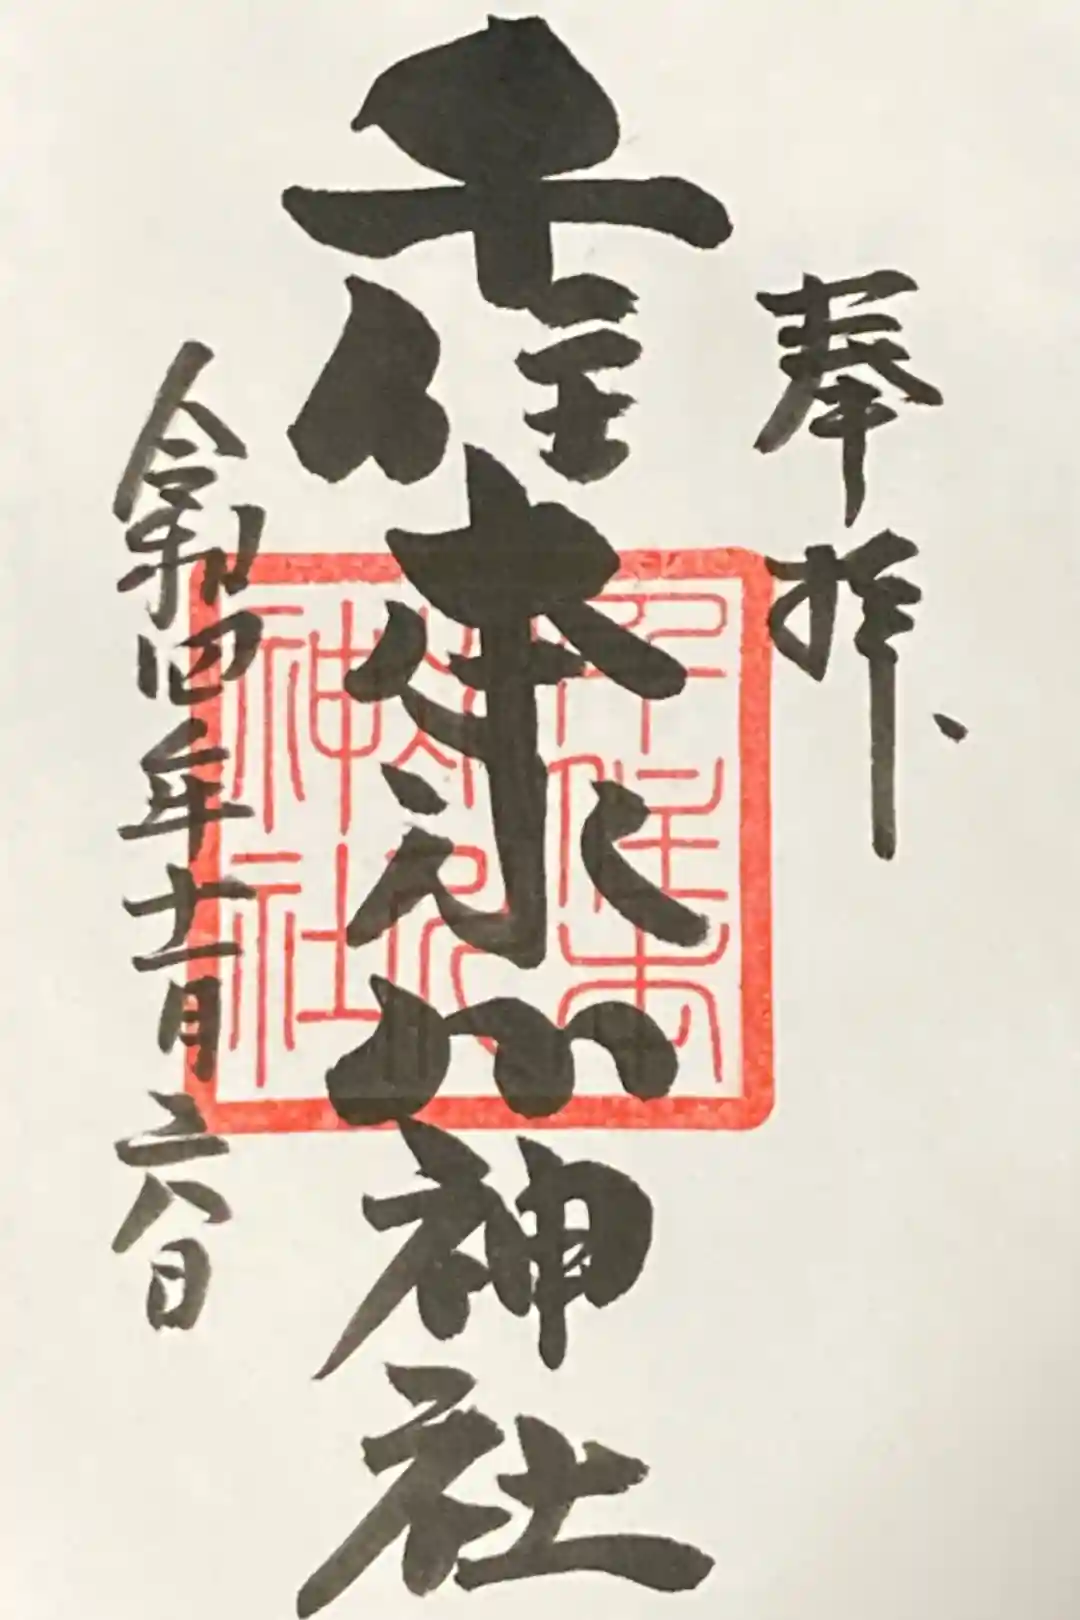 奉拝
千住本氷川神社
令和四年十一月二八日
千住本
氷川
神社